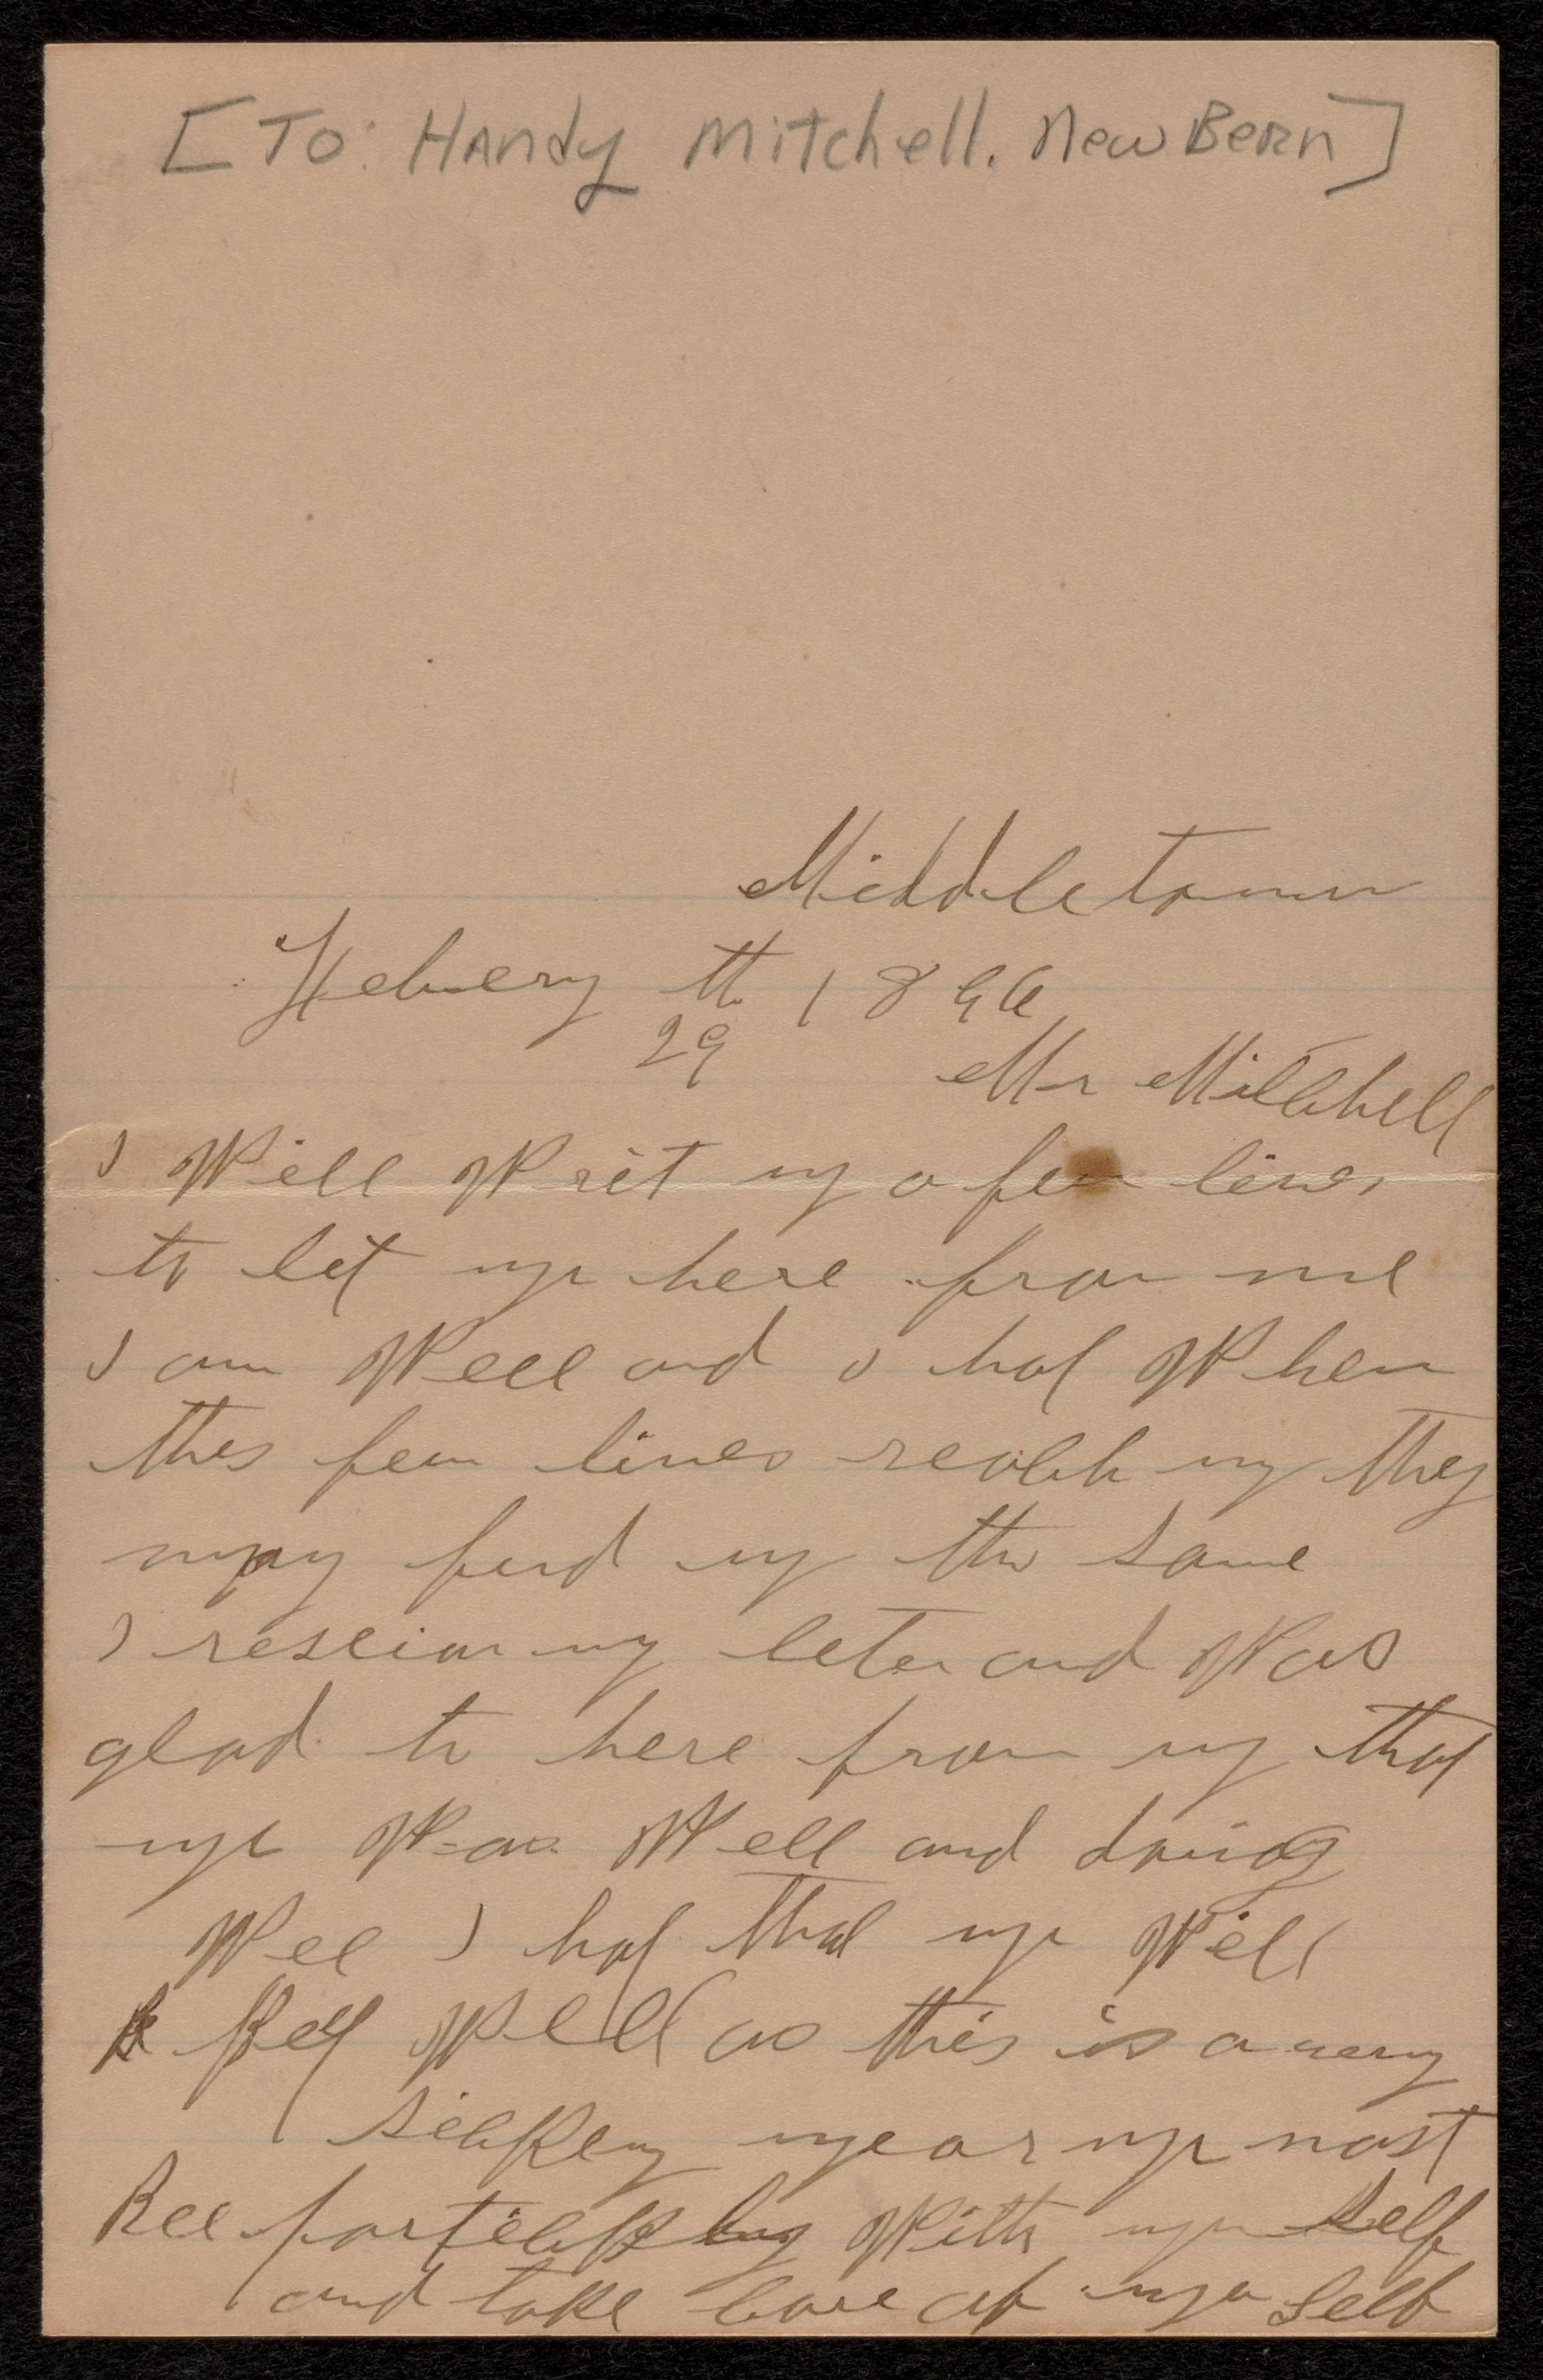 [To: Handy Mitchell. New Bern]
Middletown
Febuery th 1896
29
Mr Mitchell
I Will Writ yu a few lines
to let yu here from me
I am Well and I hof When
thes few lines reach yu they
may find yu the same
I resciav yu leter and Was
glad to here from yu that
yu Was Well and doing
Well I hof that yu Will
Kef Well as this is a very
sickey year yu most
Bee with yu self
and take care of yu self